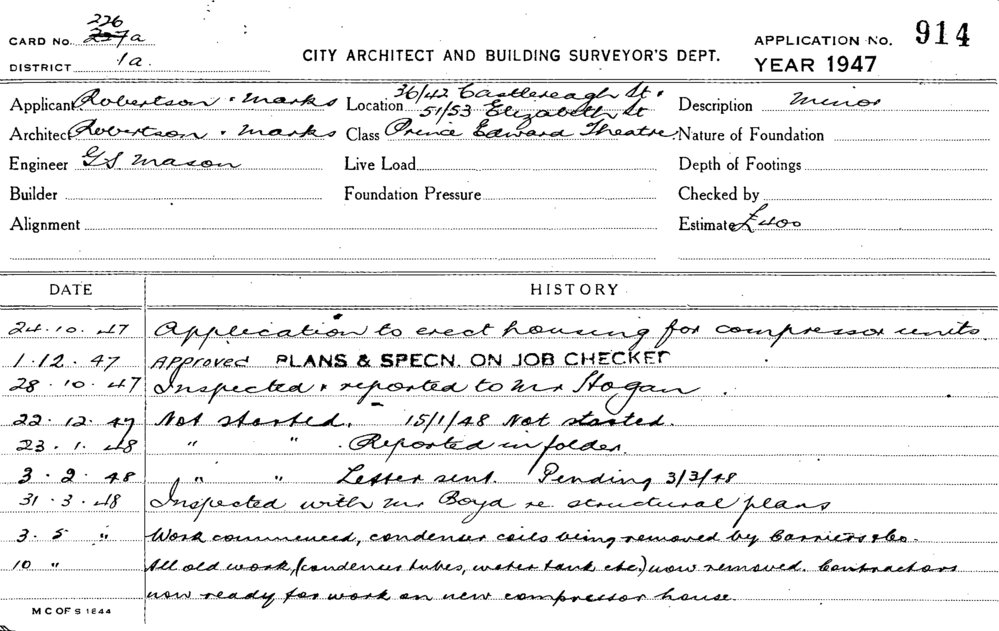 CARD No. 227a 226
DISTRICT 1a.
CITY ARCHITECT AND BUILDING SURVEYOR'S DEPT.
APPLICATION No. 914
YEAR 1947
Applicant Robertson & Marks Location 36/42 Castlereagh St. Description Minor
51/53 Elizabeth St
Architect Robertson & Marks Class Prince Edward Theatre Nature of Foundation
Engineer G.S. Mason Live Load Depth of Footings
Builder Foundation Pressure Checked by
Alignment Estimate £400
DATE HISTORY
24.10.47 Application to erect housing for compressor units
1.12.47 Approved PLANS & SPECN. ON JOB CHECKED
28.10.47 Inspected & reported to Mr Hogan
22.12.47 Not started. 15/1/48 Not started.
23.1.48 " " Reported in folder.
3.2.48 " " Letter sent. Pending 3/3/48
31.3.48 Inspected with Mr Boyd re. structural plans
3.5 " Work commenced, condenser coils being removed by Carriers & Co.
10 " All old work, (condenser tubes, water tank etc.) now removed. Contractors
now ready for work on new compressor house.
M C OF S 1844